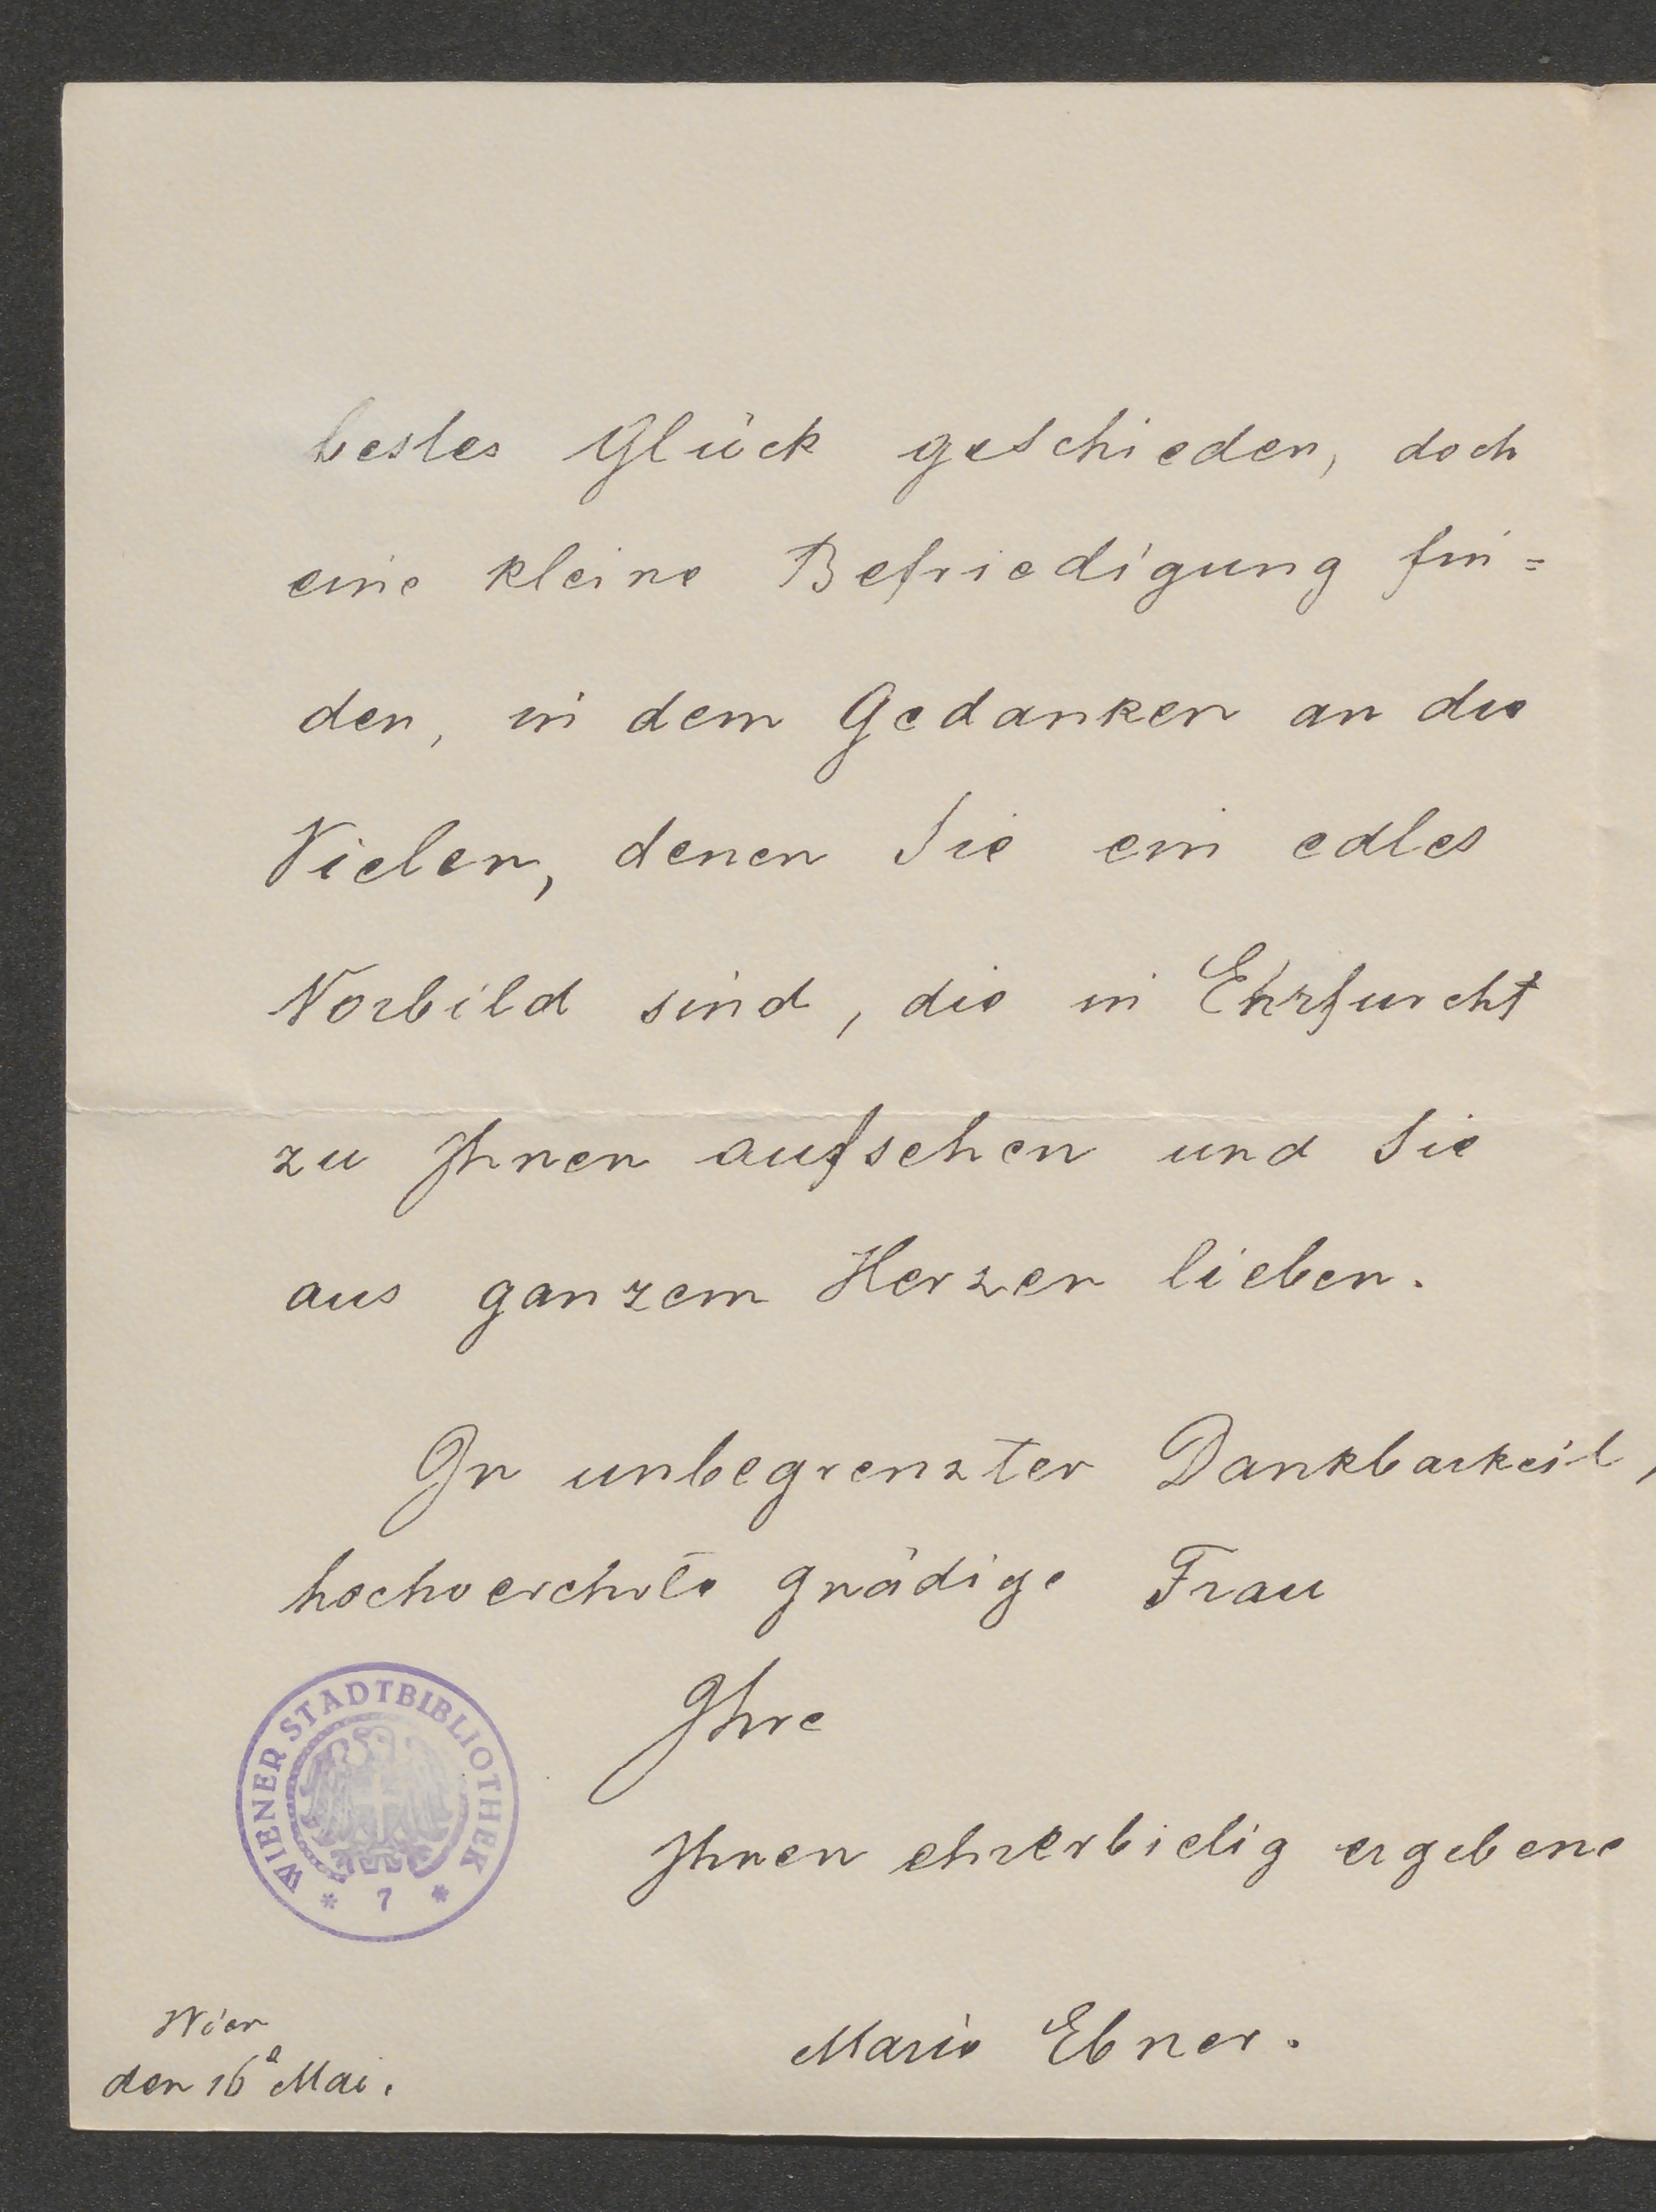 bestes Glück geschieden, doch
eine kleine Befriedigung fin=
den, in dem Gedanken an die
Vielen, denen Sie ein edles
Vorbild sind, die in Ehrfurcht
zu Ihnen aufsehen und Sie
aus ganzem Herzen lieben.
In unbegrenzter Dankbarkeit,
hochverehrte gnädige Frau
Ihre
Ihnen ehrerbietig ergebene
Marie Ebner.
WIENER STADTBIBLIOTHEK
* 7 *
Wien
den 16e Mai.